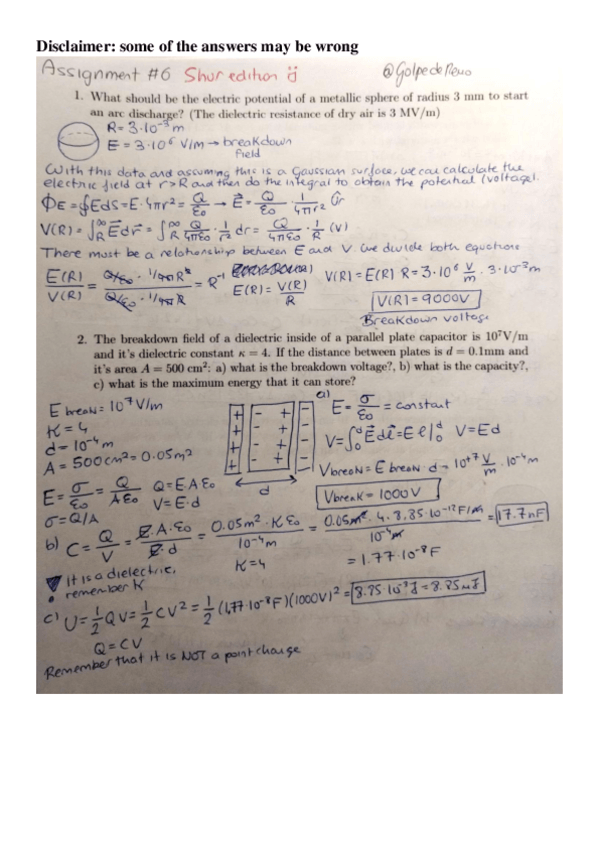 Disclaimer: some of the answers may be wrong
Assignment #6 Shur edition @GolpedeRemo
1. What should be the electric potential of a metallic sphere of radius 3 mm to start
an arc discharge? (The dielectric resistance of dry air is 3 MV/m)
R = 3·10⁻³ m
E = 3·10⁶ V/m → breakdown
field
With this data and assuming this is a Gaussian surface, we can calculate the
electric field at r>R and then do the integral to obtain the potential (voltage).
ΦE = ∮EdS = E·4πr² = Q/ε₀ → E⃗ = Q/ε₀ · 1/4πr² ûr
V(R) = ∫R^∞ E⃗dr⃗ = ∫R^∞ Q/4πε₀ · 1/r² dr = Q/4πε₀ · 1/R (V)
There must be a relationship between E and V (we divide both equations
E(R)/V(R) = (Q/ε₀ · 1/4πR²)/(Q/ε₀ · 1/4πR) = R⁻¹ E(R) = V(R)/R V(R) = E(R) R = 3·10⁶ V/m · 3·10⁻³m
V(R) = 9000V
Breakdown voltage
2. The breakdown field of a dielectric inside of a parallel plate capacitor is 10⁷V/m
and it's dielectric constant κ = 4. If the distance between plates is d = 0.1mm and
it's area A = 500 cm²: a) what is the breakdown voltage?, b) what is the capacity?,
c) what is the maximum energy that it can store?
E break = 10⁷ V/m
K = 4
d = 10⁻⁴ m
A = 500cm² = 0.05m²
a) E = σ/ε₀ = constant
V = ∫₀^d E⃗dl⃗ = El|₀^d V = Ed
Vbreak = E break · d = 10⁺⁷ V/m · 10⁻⁴m
Vbreak = 1000V
d
E = σ/ε₀ = Q/Aε₀ Q = E A ε₀
σ = Q/A V = E·d
b) C = Q/V = E·A·ε₀/E·d = 0.05m²·K ε₀/10⁻⁴m = 0.05m²·4·8.85·10⁻¹² F/m/10⁻⁴m = 17.7nF
K = 4 = 1.77·10⁻⁸F
It is a dielectric,
remember K
c) U = 1/2 QV = 1/2 CV² = 1/2 (1,77·10⁻⁸F)(1000V)² = 8.85·10⁻³J = 8.85mJ
Q = CV
Remember that it is NOT a point charge